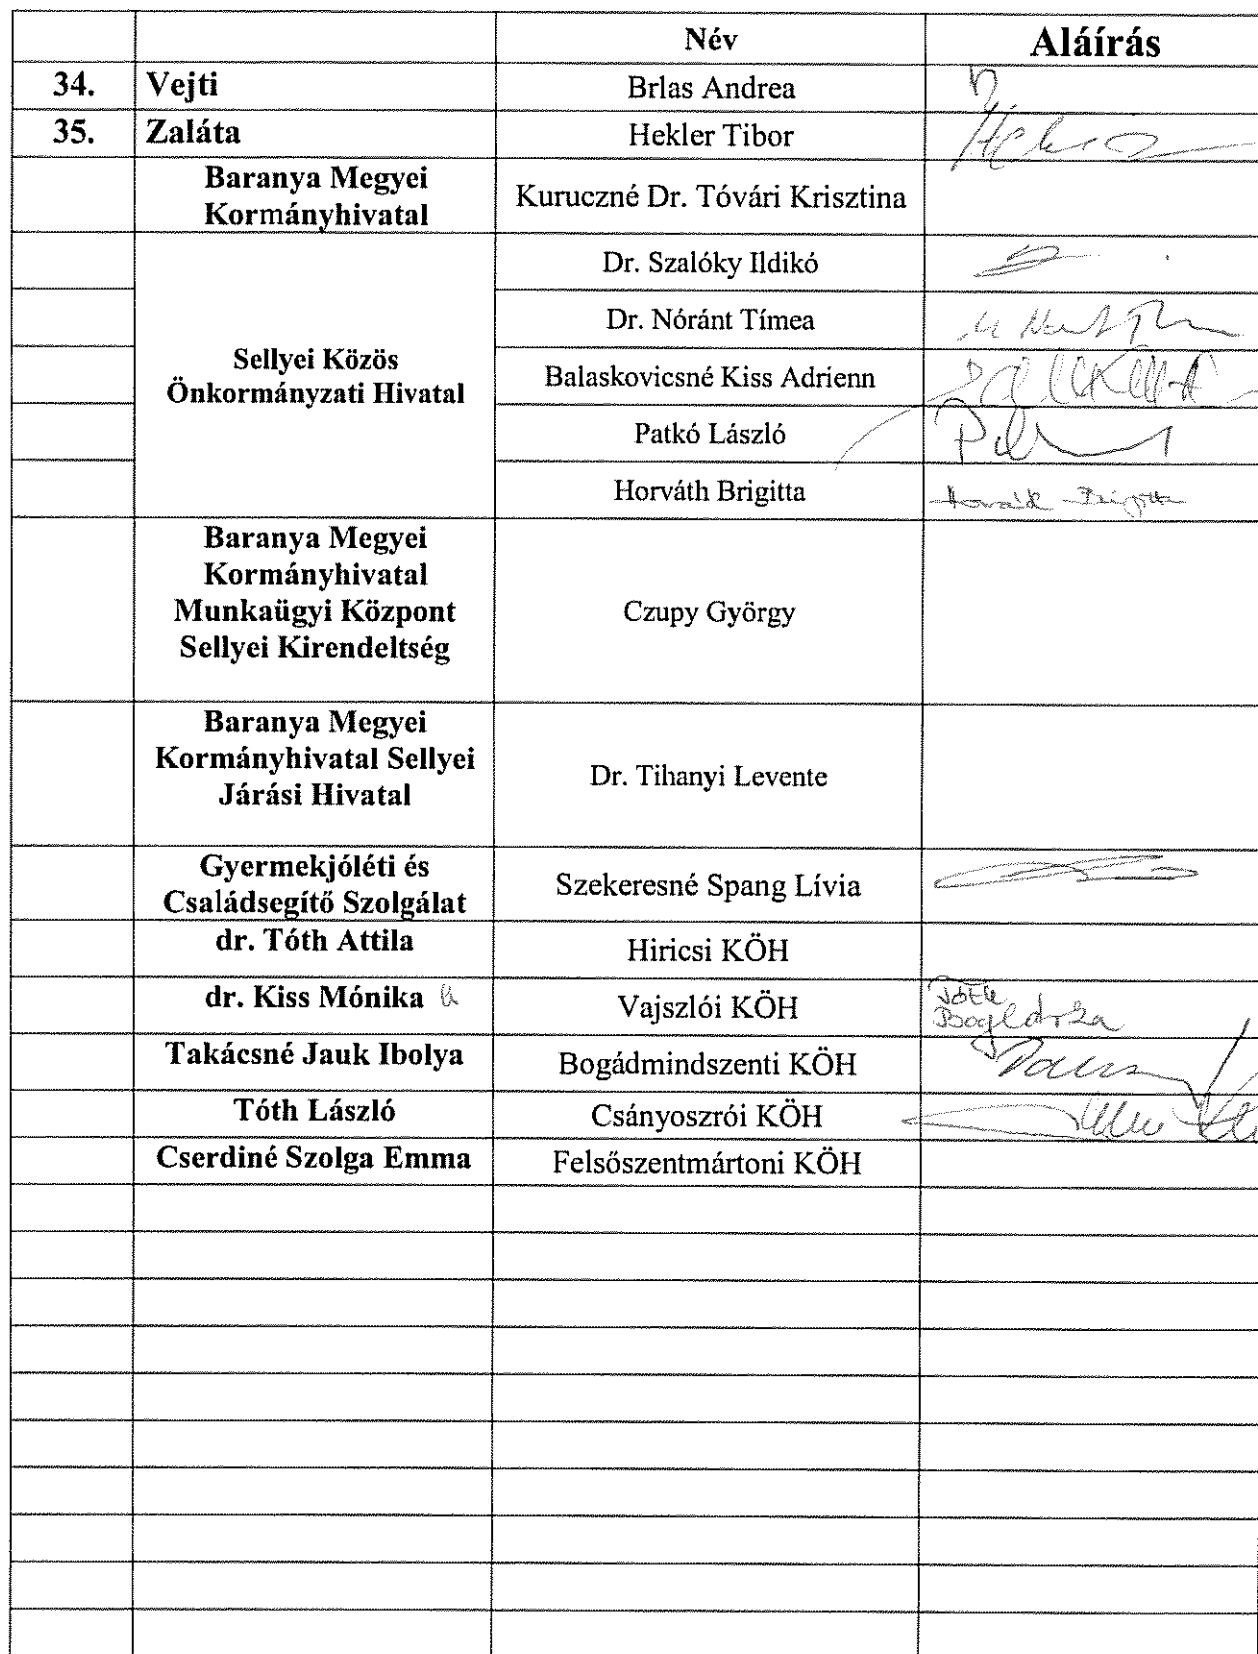 Név Aláírás
34. Vejti Brlas Andrea
35. Zaláta Hekler Tibor
Baranya Megyei
Kormányhivatal
Kuruczné Dr. Tóvári Krisztina
Sellyei Közös
Önkormányzati Hivatal
Dr. Szalóky Ildikó
Dr. Nóránt Tímea
Balaskovicsné Kiss Adrienn
Patkó László
Horváth Brigitta Horváth Brigitta
Baranya Megyei
Kormányhivatal
Munkaügyi Központ
Sellyei Kirendeltség
Czupy György
Baranya Megyei
Kormányhivatal Sellyei
Járási Hivatal
Dr. Tihanyi Levente
Gyermekjóléti és
Családsegítő Szolgálat
Szekeresné Spang Lívia
dr. Tóth Attila Hiricsi KÖH
dr. Kiss Mónika Vajszlói KÖH
Tóth
Boglárka
Takácsné Jauk Ibolya Bogádmindszenti KÖH
Tóth László Csányoszrói KÖH
Cserdiné Szolga Emma Felsőszentmártoni KÖH